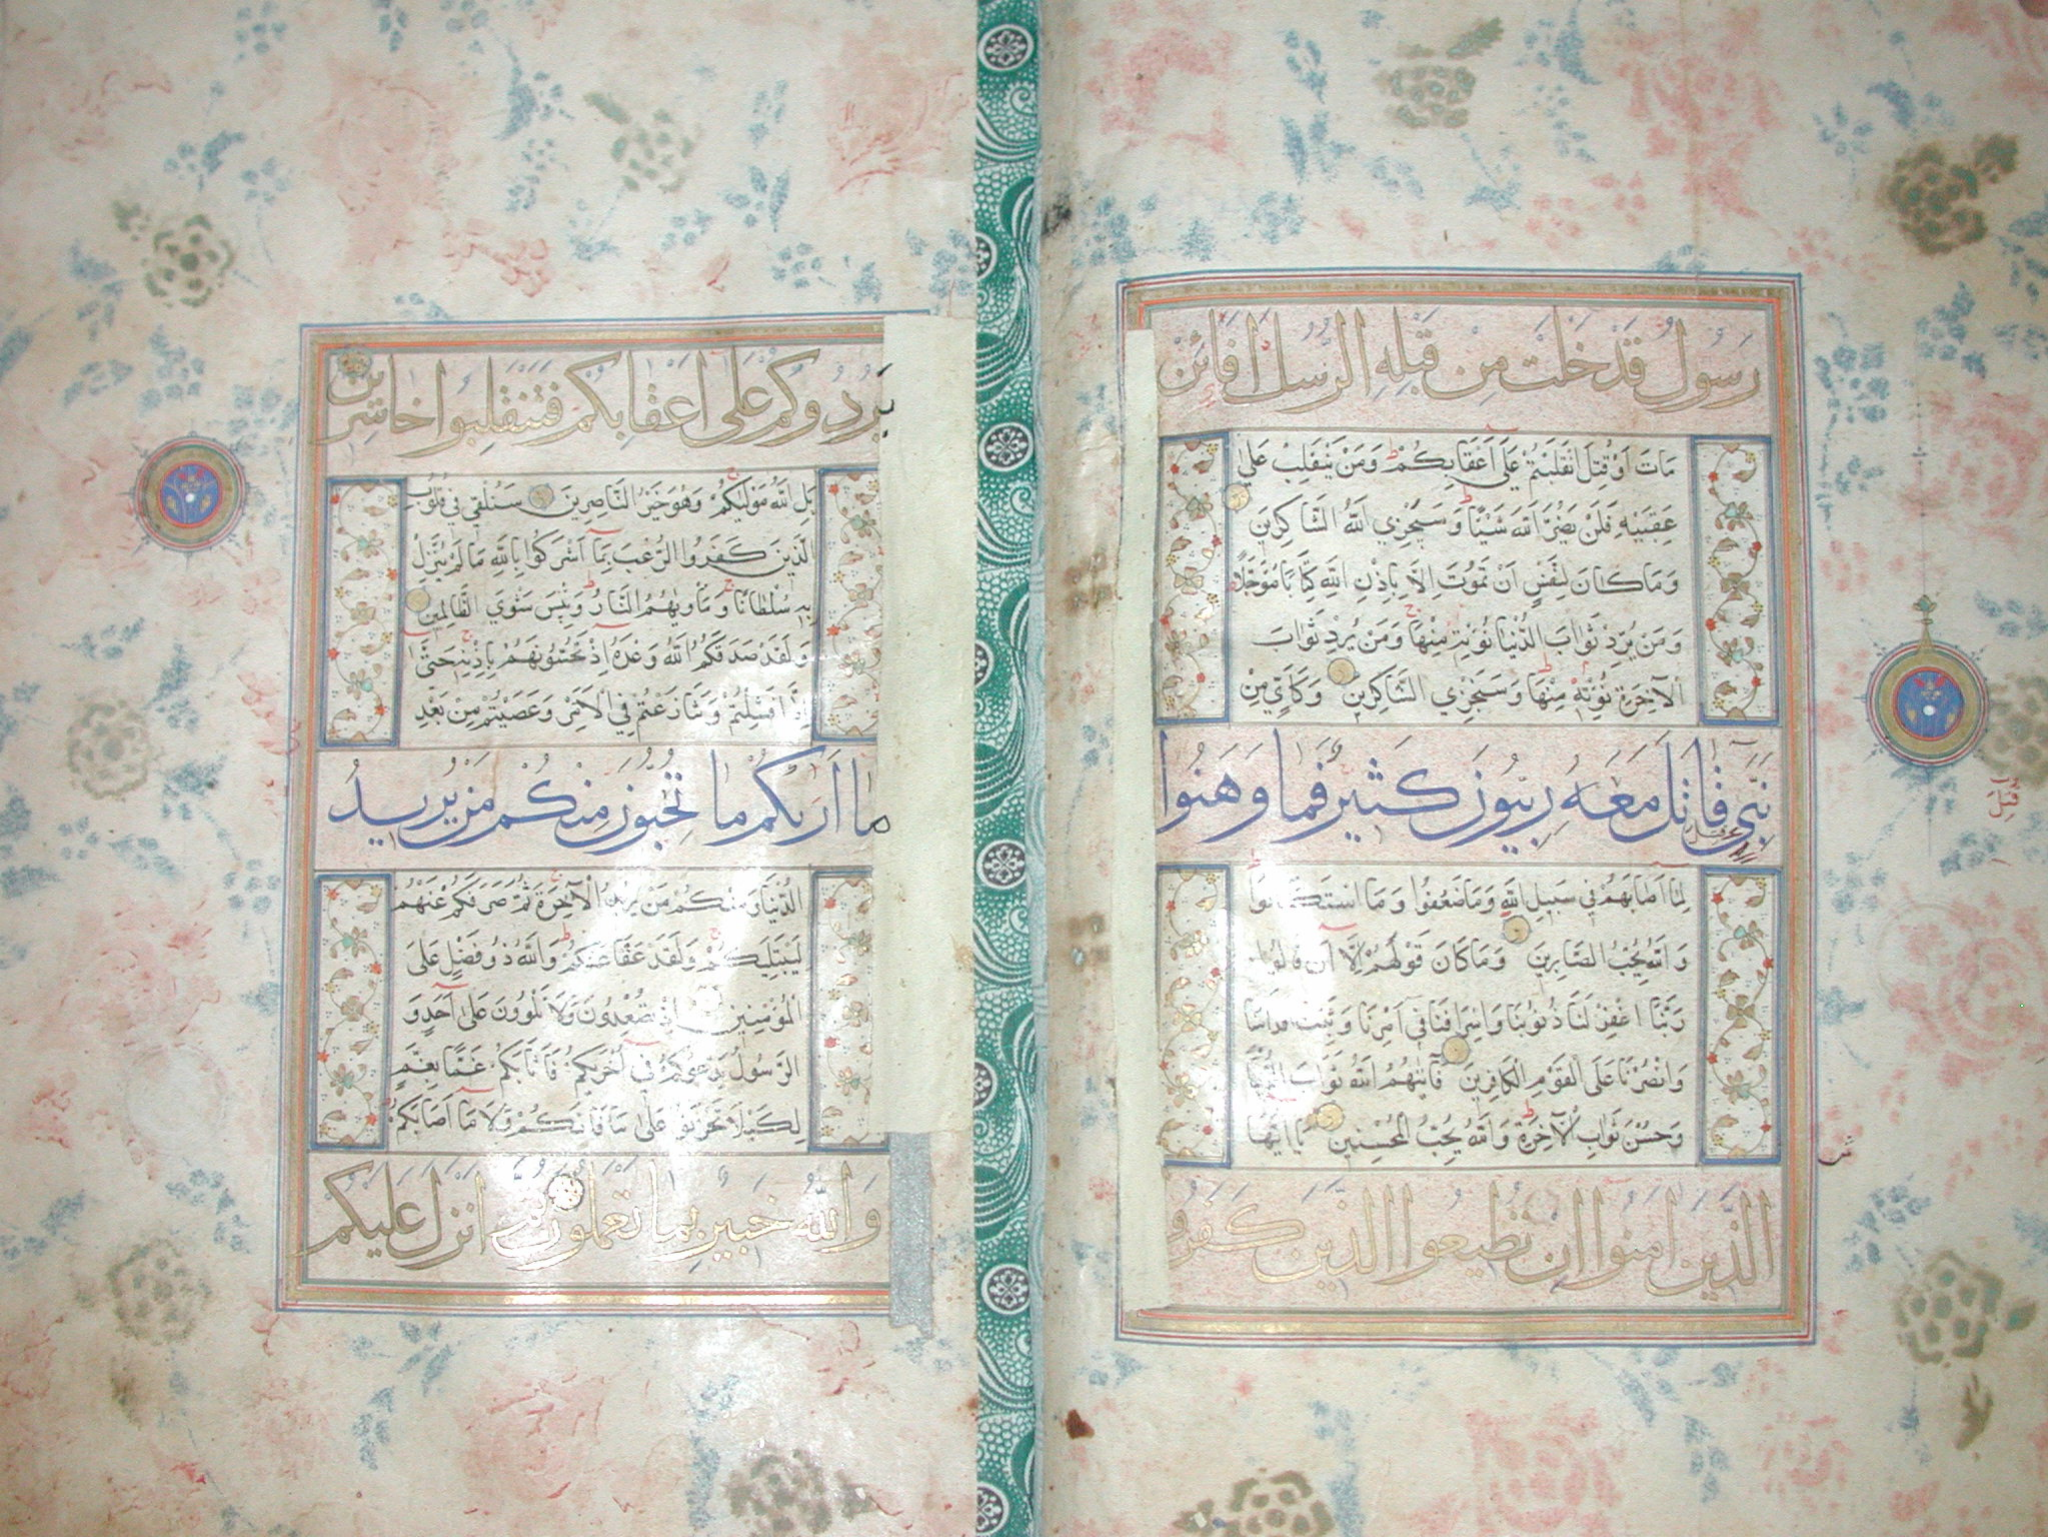 رَسُولٌ قَدْ خَلَتْ مِنْ قَبْلِهِ الرُّسُلُ اَفَائِنْ
مَاتَ اَوْ قُتِلَ انْقَلَبْتُمْ عَلَى اَعْقَابِكُمْ وَمَنْ يَنْقَلِبْ عَلَى
عَقِبَيْهِ فَلَنْ يَضُرَّ اللهَ شَيْئًا وَسَيَجْزِي اللهُ الشَّاكِرِينَ
وَمَا كَانَ لِنَفْسٍ اَنْ تَمُوتَ اِلَّا بِاِذْنِ اللهِ كِتَابًا مُؤَجَّلًا
وَمَنْ يُرِدْ ثَوَابَ الدُّنْيَا نُؤْتِهِ مِنْهَا وَمَنْ يُرِدْ ثَوَابَ
الْآخِرَةِ نُؤْتِهِ مِنْهَا وَسَنَجْزِي الشَّاكِرِينَ وَكَاَيِّنْ مِنْ
نَبِيٍّ قَاتَلَ مَعَهُ رِبِّيُّونَ كَثِيرٌ فَمَا وَهَنُوا
لِمَا اَصَابَهُمْ فِي سَبِيلِ اللهِ وَمَا ضَعُفُوا وَمَا اسْتَكَانُوا
وَاللهُ يُحِبُّ الصَّابِرِينَ وَمَا كَانَ قَوْلَهُمْ اِلَّا اَنْ قَالُوا
رَبَّنَا اغْفِرْ لَنَا ذُنُوبَنَا وَاِسْرَافَنَا فِي اَمْرِنَا وَثَبِّتْ اَقْدَامَنَا
وَانْصُرْنَا عَلَى الْقَوْمِ الْكَافِرِينَ فَآتٰيهُمُ اللهُ ثَوَابَ الدُّنْيَا
وَحُسْنَ ثَوَابِ الْآخِرَةِ وَاللهُ يُحِبُّ الْمُحْسِنِينَ يَا اَيُّهَا
الَّذِينَ اٰمَنُوا اِنْ تُطِيعُوا الَّذِينَ كَفَرُوا
يَرُدُّوكُمْ عَلَى اَعْقَابِكُمْ فَتَنْقَلِبُوا خَاسِرِينَ
بَلِ اللهُ مَوْلٰيكُمْ وَهُوَ خَيْرُ النَّاصِرِينَ سَنُلْقِي فِي قُلُوبِ
الَّذِينَ كَفَرُوا الرُّعْبَ بِمَا اَشْرَكُوا بِاللهِ مَا لَمْ يُنَزِّلْ
بِهِ سُلْطَانًا وَمَاْوٰيهُمُ النَّارُ وَبِئْسَ مَثْوَى الظَّالِمِينَ
وَلَقَدْ صَدَقَكُمُ اللهُ وَعْدَهُ اِذْ تَحُسُّونَهُمْ بِاِذْنِهِ حَتَّى
اِذَا فَشِلْتُمْ وَتَنَازَعْتُمْ فِي الْاَمْرِ وَعَصَيْتُمْ مِنْ بَعْدِ
مَا اَرٰيكُمْ مَا تُحِبُّونَ مِنْكُمْ مَنْ يُرِيدُ
الدُّنْيَا وَمِنْكُمْ مَنْ يُرِيدُ الْآخِرَةَ ثُمَّ صَرَفَكُمْ عَنْهُمْ
لِيَبْتَلِيَكُمْ وَلَقَدْ عَفَا عَنْكُمْ وَاللهُ ذُو فَضْلٍ عَلَى
الْمُؤْمِنِينَ اِذْ تُصْعِدُونَ وَلَا تَلْوُونَ عَلَى اَحَدٍ وَ
الرَّسُولُ يَدْعُوكُمْ فِي اُخْرٰيكُمْ فَاَثَابَكُمْ غَمًّا بِغَمٍّ
لِكَيْلَا تَحْزَنُوا عَلَى مَا فَاتَكُمْ وَلَا مَا اَصَابَكُمْ
وَاللهُ خَبِيرٌ بِمَا تَعْمَلُونَ ثُمَّ اَنْزَلَ عَلَيْكُمْ